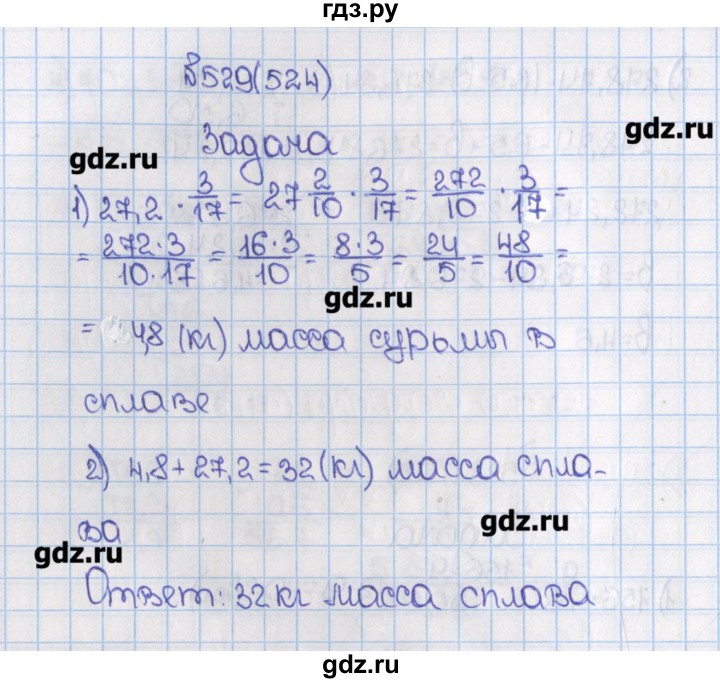 гдз.ру
№529(524)
gdz.ru
Задача
gdz.ru
1) 27,2 · 3/17 = 27 2/10 · 3/17 = 272/10 · 3/17 =
= 272·3/10·17 = 16·3/10 = 8·3/5 = 24/5 = 48/10 =
gdz.ru
= 4,8 (кг) масса сурьмы в
сплаве
2) 4,8 + 27,2 = 32 (кг) масса спла-
gdz.ru
ва
gdz.ru
Ответ: 32 кг масса сплава
gdz.ru